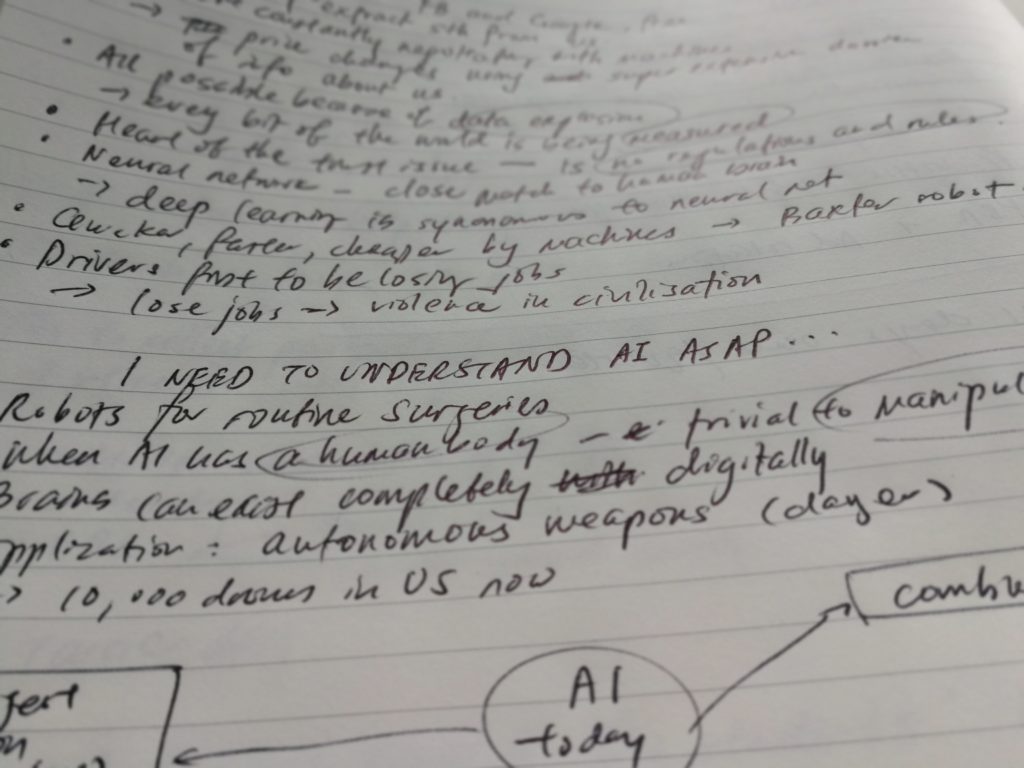 → constantly negotiating with machines
price changes using super extensive
of info about us
• All possible because of data explosion
→ Every bit of the world is being measured
• Heart of the trust issue — is no regulations and rules.
• Neural network – close match to human brain
→ deep learning is synonomous to neural net
• faster, cheaper by machines → Baxter robot.
• Drivers first to be losing jobs
→ lose jobs → violence in civilisation
I NEED TO UNDERSTAND AI ASAP...
Robots for routine surgeries
when AI has a human body – trivial to manipul
Brains can exist completely digitally
pplization: autonomous weapons (danger)
→ 10,000 drones in US now
combi
AI
today